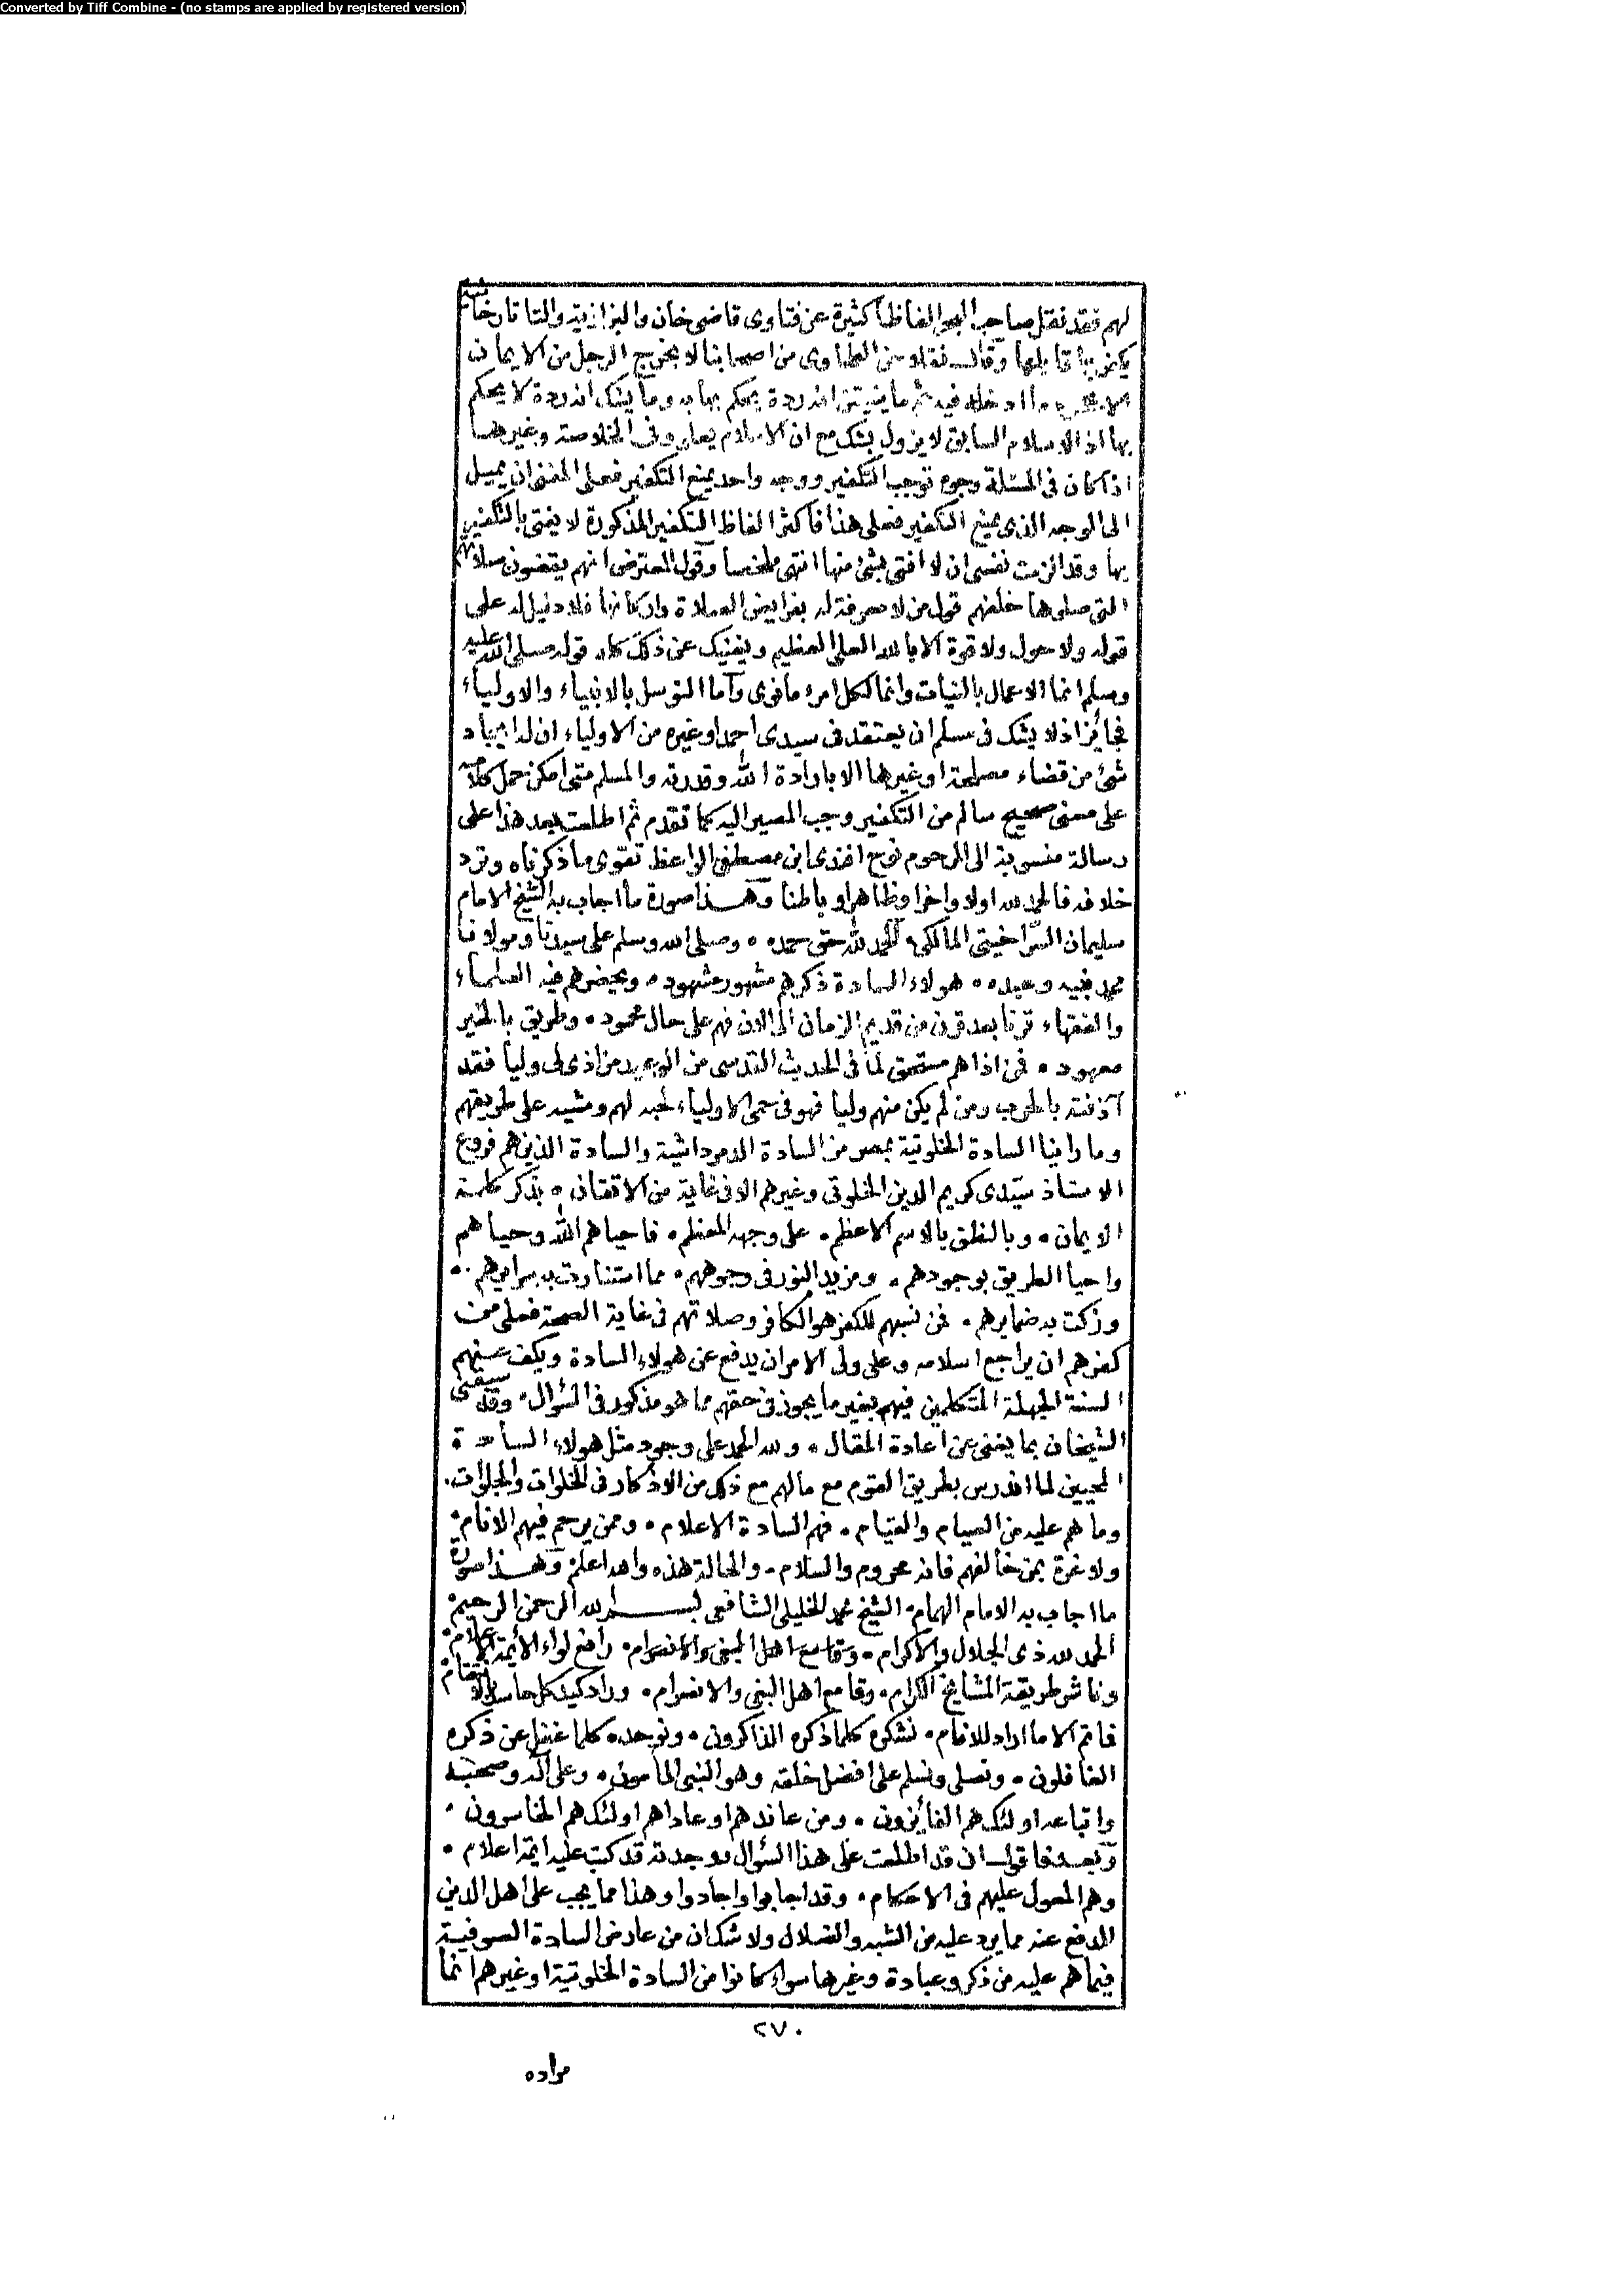 Converted by Tiff Combine - (no stamps are applied by registered version)
لهم فقد نقل صاحب البحر الفاظا كثيرة عن فتاوى قاضى خان والبزازية والتاتارخانية
يكفر بها قايلها وقال نقلا عن الطحاوى من اصحابنا لا يخرج الرجل من الايمان
الا جحود ما ادخله فيه ثم ما يتيقن انه ردة يحكم بها به وما يشك انه ردة لا يحكم
بها اذ الاسلام السابق لا يزول بشك مع ان الاسلام يعلو وفى الخلاصة وغيرها
اذا كان فى المسئلة وجوه توجب التكفير ووجه واحد يمنع التكفير فعلى المفتى ان يميل
الى الوجه الذى يمنع التكفير فعلى هذا فاكثر الفاظ التكفير المذكورة لا يفتى بالتكفير
بها وقد الزمت نفسى ان لا افتى بشئ منها انتهى ملخصا وقول المعترض انهم يقضون صلاتهم
التى صلوها خلفهم قول من لا معرفة له بفرايض الصلاة واركانها فلا دليل له على
قوله ولا حول ولا قوة الا بالله العلى العظيم ويغنيك عن ذلك كله قوله صلى الله عليه
وسلم انما الاعمال بالنيات وانما لكل امرء ما نوى واما التوسل بالانبياء والاولياء
فجائز اذ لا يشك فى مسلم ان يعتقد فى سيدى احمد او غيره من الاولياء ان له ايجاد
شئ من قضاء مصلحة او غيرها الا بارادة الله وقدرته والمسلم متى امكن حمل كلامه
على معنى صحيح سالم من التكفير وجب المصير اليه كما تقدم ثم اطلعت بعد هذا على
رسالة منسوبة الى المرحوم نوح افندى ابن مصطفى الواعظ تقوى ما ذكرناه وترد
خلافه فالحمد لله اولا واخرا وظاهرا وباطنا وهذا صورة ما اجاب به الشيخ الامام
سليمان الشبراخيتى المالكى الحمد لله حق حمده ٠ وصلى الله وسلم على سيدنا ومولانا
محمد نبيه وعبده ٠ هولاء السادة ذكرهم مشهور مشهود ٠ ويحضرهم فيه العلماء
والفقهاء قرنا بعد قرن من قديم الزمان الى الان فهم على حال محمود ٠ وطريق بالخير
معهود ٠ فمن اذاهم مستحق لما فى الحديث القدسى من الوعيد من اذى لى وليا فقد
آذنته بالحرب ومن لم يكن منهم وليا فهو فى حمى الاولياء لحبه لهم ومشيه على طريقهم
وما راينا السادة الخلوتية بمصر من السادة الدمرداشية والسادة الذين هم فروع
الاستاذ سيدى كريم الدين الخلوتى وغيرهم الا فى غاية من الاتقان ٠ بذكر كلمة
الايمان ٠ وبالنطق بالاسم الاعظم ٠ على وجهه المعظم ٠ فاحياهم الله وحياهم
واحيا الطريق بوجودهم ٠ ومزيد النور فى وجوههم ٠ مما استنارت به سرايرهم ٠
وزكت به ضمايرهم ٠ فمن نسبهم للكفر هو الكافر وصلاتهم فى غاية الصحة فعلى من
كفرهم ان يراجع اسلامه وعلى ولى الامر ان يدفع عن هولاء السادة ويكف عنهم
السنة الجهلة المتكلمين فيهم بغير ما يجوز فى حقهم مما هو مذكور فى السؤال ٠ وقد سبقنى
الشيخان بما يغنى عن اعادة المقال ٠ ولله الحمد على وجود مثل هولاء السادة
المحيين لما اندرس بطريق القوم مع مالهم مع ذلك من الاذكار فى الخلوات والجلوات ٠
وما هم عليه من الصيام والقيام ٠ فهم السادة الاعلام ٠ وممن يرحم فيهم الانام ٠
ولا غرة بمن خالفهم فانه محروم والسلام ٠ والحالة هذه والله اعلم وهذا صورة
ما اجاب به الامام الهمام ٠ الشيخ محمد الخليلى الشافعى بسم الله الرحمن الرحيم ٠
الحمد لله ذى الجلال والاكرام ٠ وقامع اهل البغى والانصرام ٠ رافع لواء الأيمة الاعلام ٠
وناشر طريقة المشايخ الكرام ٠ وقامع اهل البغى والانصرام ٠ وراد كيد كل حاسد
فاتم الا ما اراد للانام ٠ نشكره كلما ذكره الذاكرون ٠ ونوحده كلما غفل عن ذكره
الغافلون ٠ ونصلى ونسلم على افضل خلقه وهو النبى المأمون ٠ وعلى آله وصحبه
واتباعه اولئك هم الفائزون ٠ ومن عاندهم او عاداهم اولئك هم الخاسرون ٠
وبعد فاقول ان قد اطلعت على هذا السؤال فوجدته قد كتب عليه ايمة اعلام ٠
وهم المعول عليهم فى الاحكام ٠ وقد اجابوا واجادوا وهذا مما يجب على اهل الدين
الدفع عنه مما يرد عليه من الشبه والضلال ولا شك ان من عارض السادة الصوفية
فيما هم عليه من ذكر وعبادة وغيرها سواء كانوا من السادة الخلوتية او غيرهم انما
٢٧٠
مراده